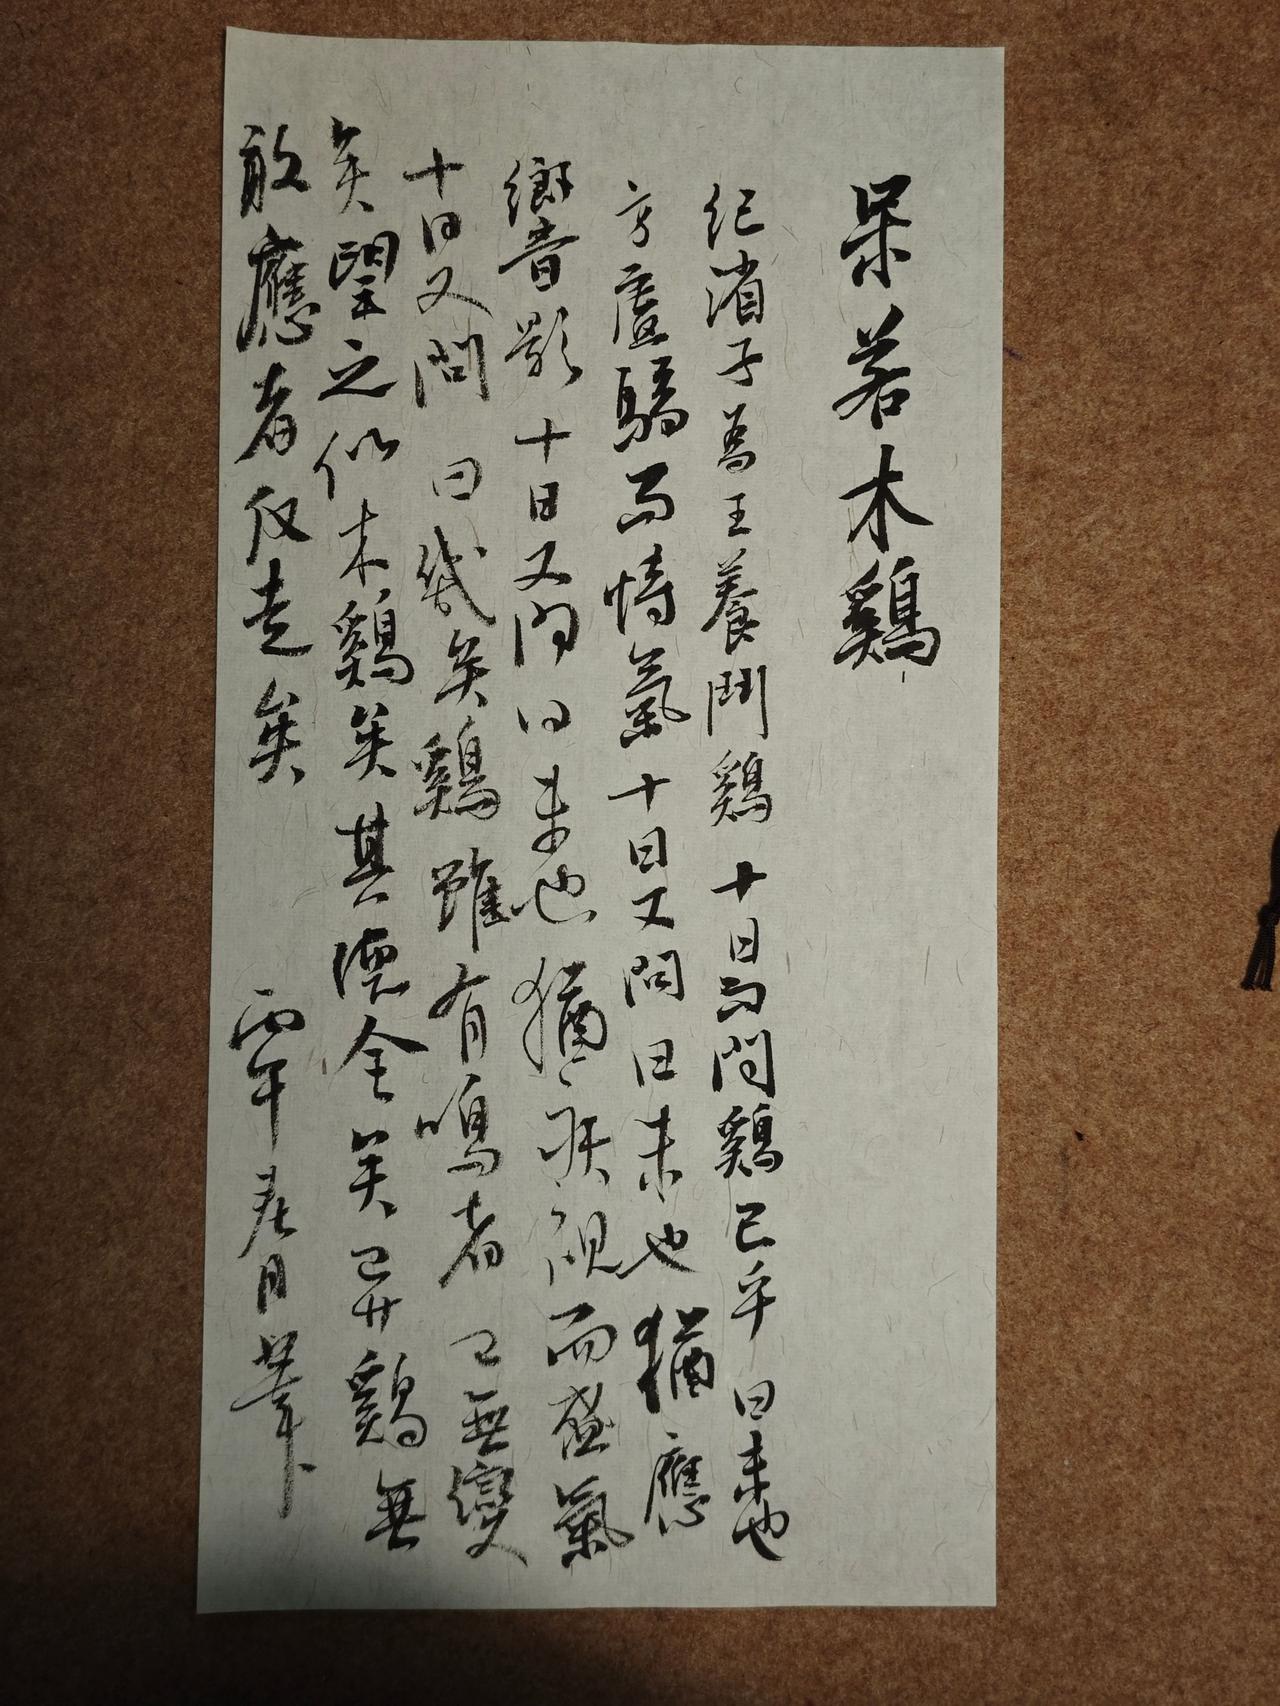 呆若木鷄
紀渻子為王養鬥鷄十日而問鷄已乎曰未也
方虛驕而恃氣十日又問曰未也猶應
嚮音影十日又問曰未也猶疾視而盛氣
十日又問曰幾矣鷄雖有鳴者已無變
矣望之似木鷄矣其德全矣異鷄無
敢應者反走矣 丙午春月